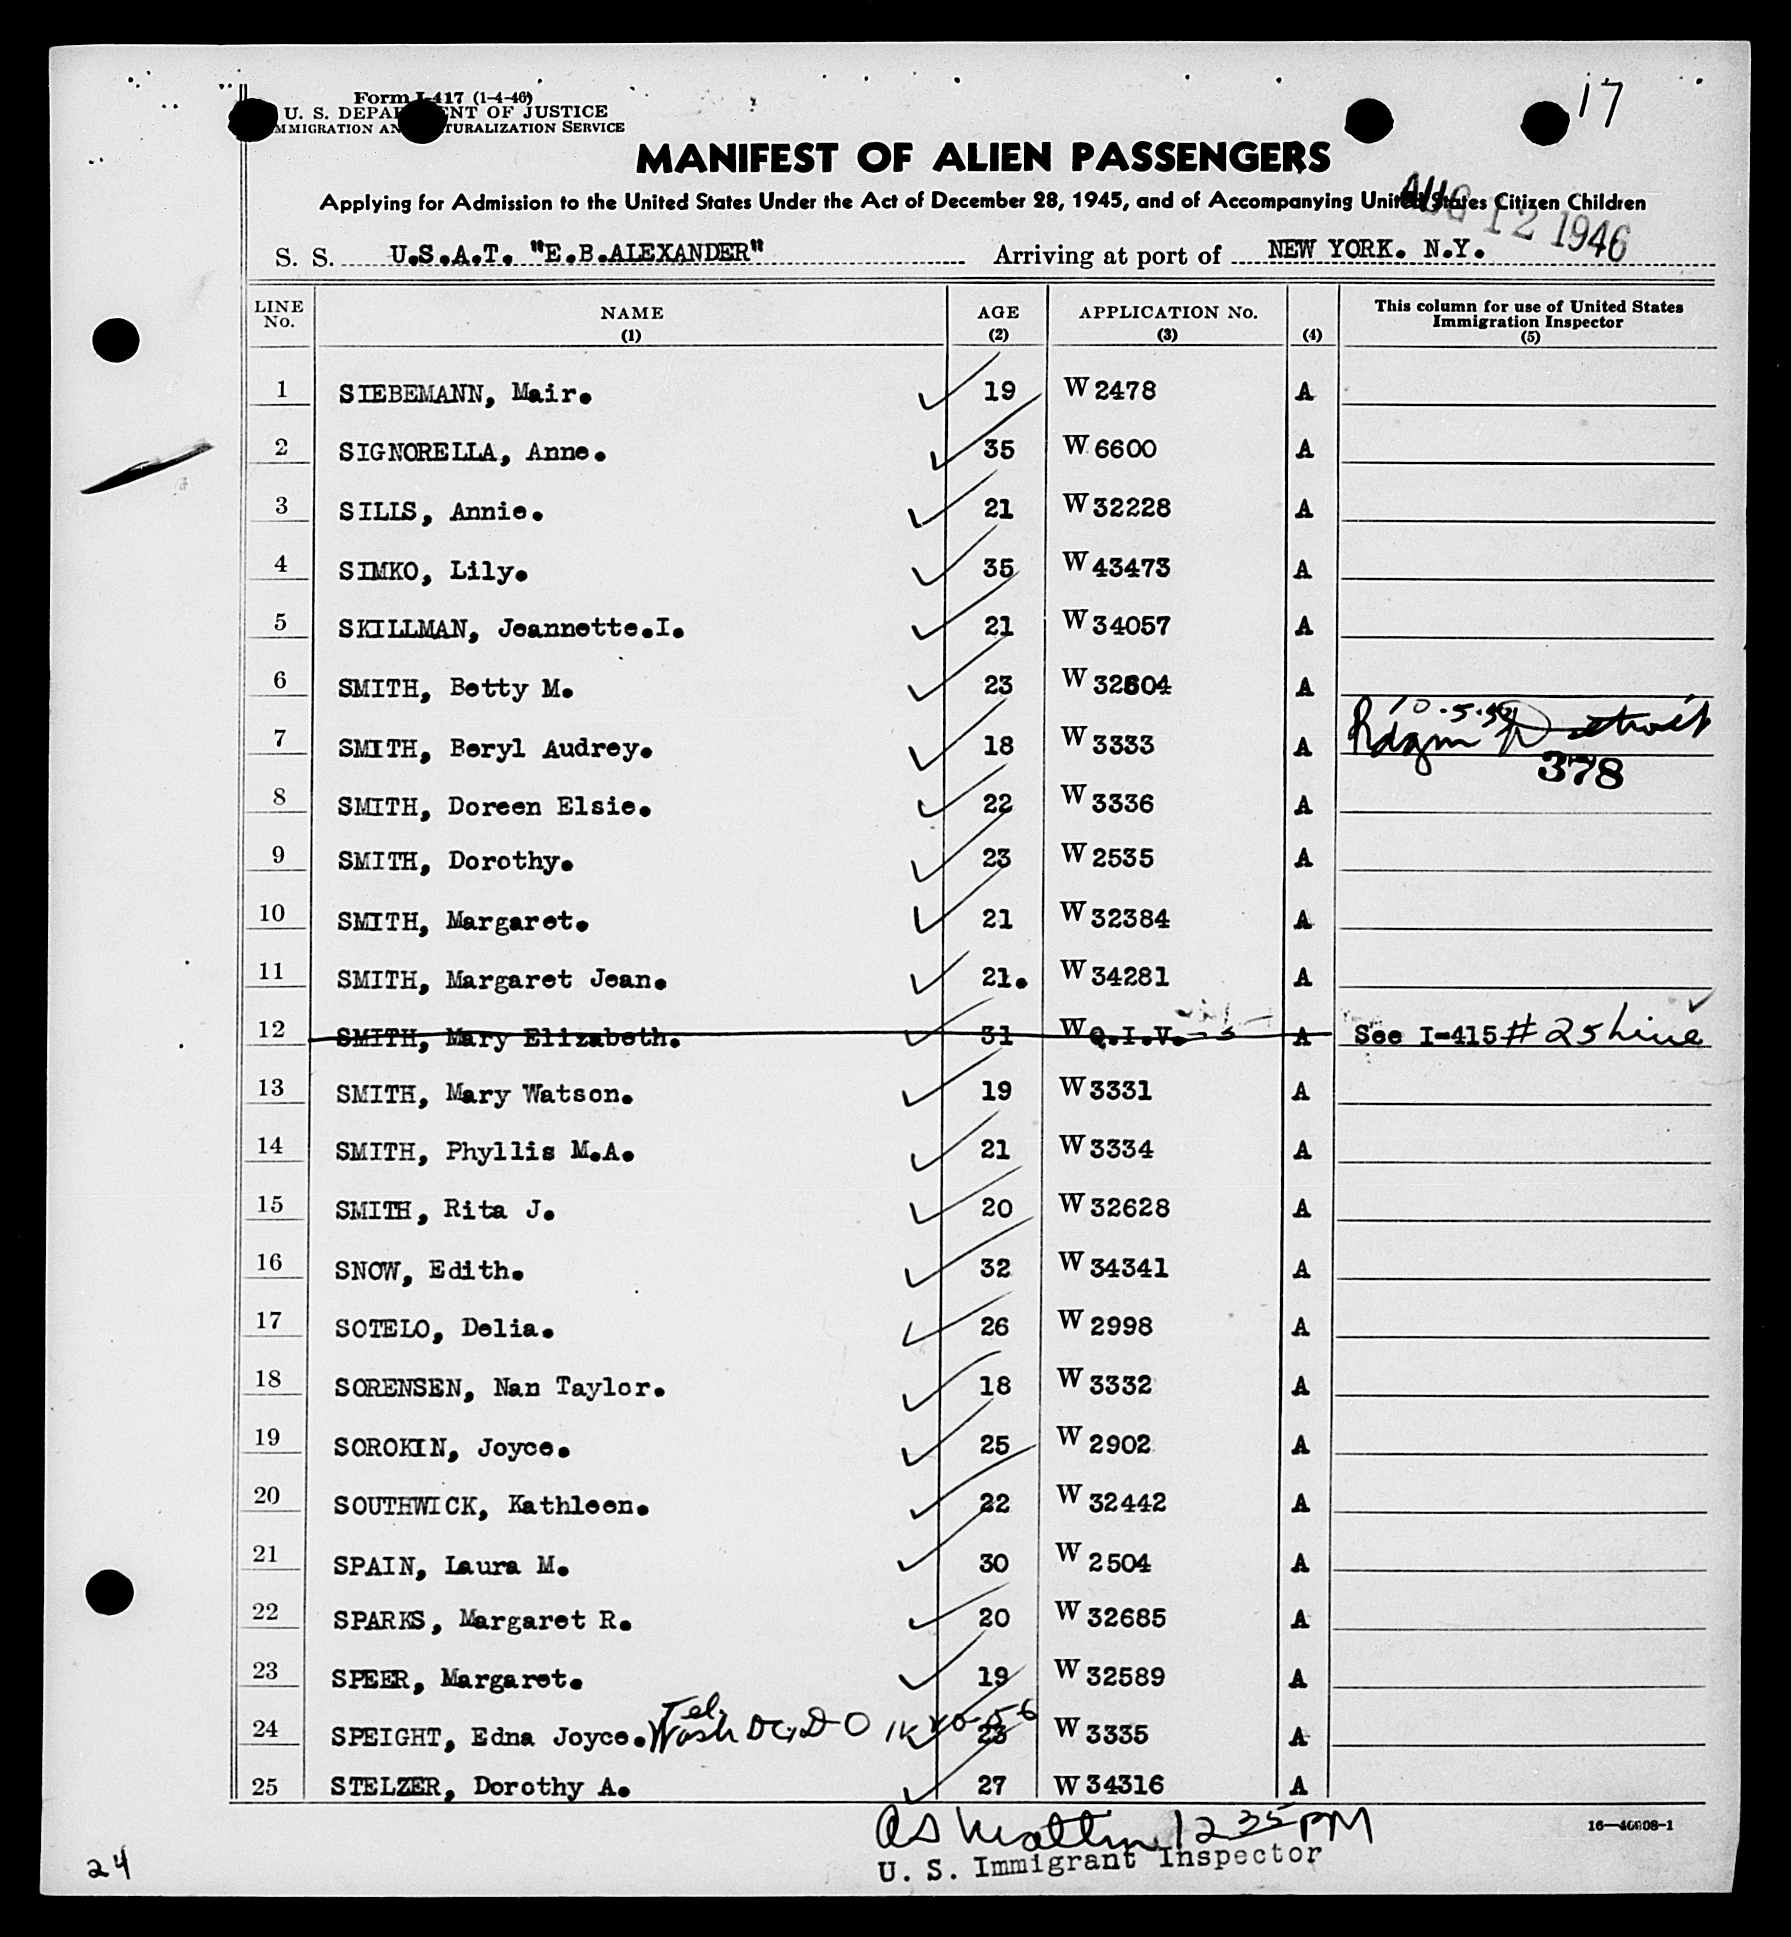 17
Form I-417 (1-4-46)
U. S. DEPARTMENT OF JUSTICE
IMMIGRATION AND NATURALIZATION SERVICE
MANIFEST OF ALIEN PASSENGERS
Applying for Admission to the United States Under the Act of December 28, 1945, and of Accompanying United States Citizen Children
AUG 12 1946
S. S. U.S.A.T. "E.B.ALEXANDER" Arriving at port of NEW YORK. N.Y.
LINE No. NAME (1) AGE (2) APPLICATION No. (3) (4) This column for use of United States Immigration Inspector (5)
1 SIEBEMANN, Mair. 19 W 2478 A
2 SIGNORELLA, Anne. 35 W 6600 A
3 SILIS, Annie. 21 W 32228 A
4 SIMKO, Lily. 35 W 43473 A
5 SKILLMAN, Jeannette.I. 21 W 34057 A
6 SMITH, Betty M. 23 W 32604 A
7 SMITH, Beryl Audrey. 18 W 3333 A 10-5-50 Detroit
378
8 SMITH, Doreen Elsie. 22 W 3336 A
9 SMITH, Dorothy. 23 W 2535 A
10 SMITH, Margaret. 21 W 32384 A
11 SMITH, Margaret Jean. 21. W 34281 A
12 SMITH, Mary Elizabeth. 31 W Q.I.V. A See I-415 # 25 Line
13 SMITH, Mary Watson. 19 W 3331 A
14 SMITH, Phyllis M.A. 21 W 3334 A
15 SMITH, Rita J. 20 W 32628 A
16 SNOW, Edith. 32 W 34341 A
17 SOTELO, Delia. 26 W 2998 A
18 SORENSEN, Nan Taylor. 18 W 3332 A
19 SOROKIN, Joyce. 25 W 2902 A
20 SOUTHWICK, Kathleen. 22 W 32442 A
21 SPAIN, Laura M. 30 W 2504 A
22 SPARKS, Margaret R. 20 W 32685 A
23 SPEER, Margaret. 19 W 32589 A
24 SPEIGHT, Edna Joyce. Tel. Wash DC, DO 23 W 3335 A
25 STELZER, Dorothy A. 27 W 34316 A
12 35 PM
U. S. Immigrant Inspector
16—46908-1
24